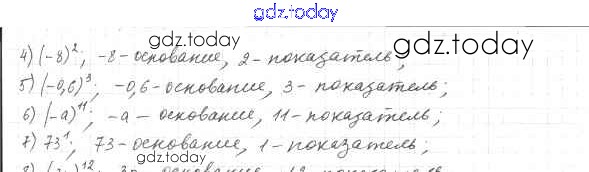 gdz.today
4) (-8)²; -8 - основание, 2 - показатель;
gdz.today
gdz.today
5) (-0,6)³; -0,6 - основание, 3 - показатель;
6) (-a)¹¹; -a - основание, 11 - показатель;
7) 73¹; 73 - основание, 1 - показатель;
gdz.today